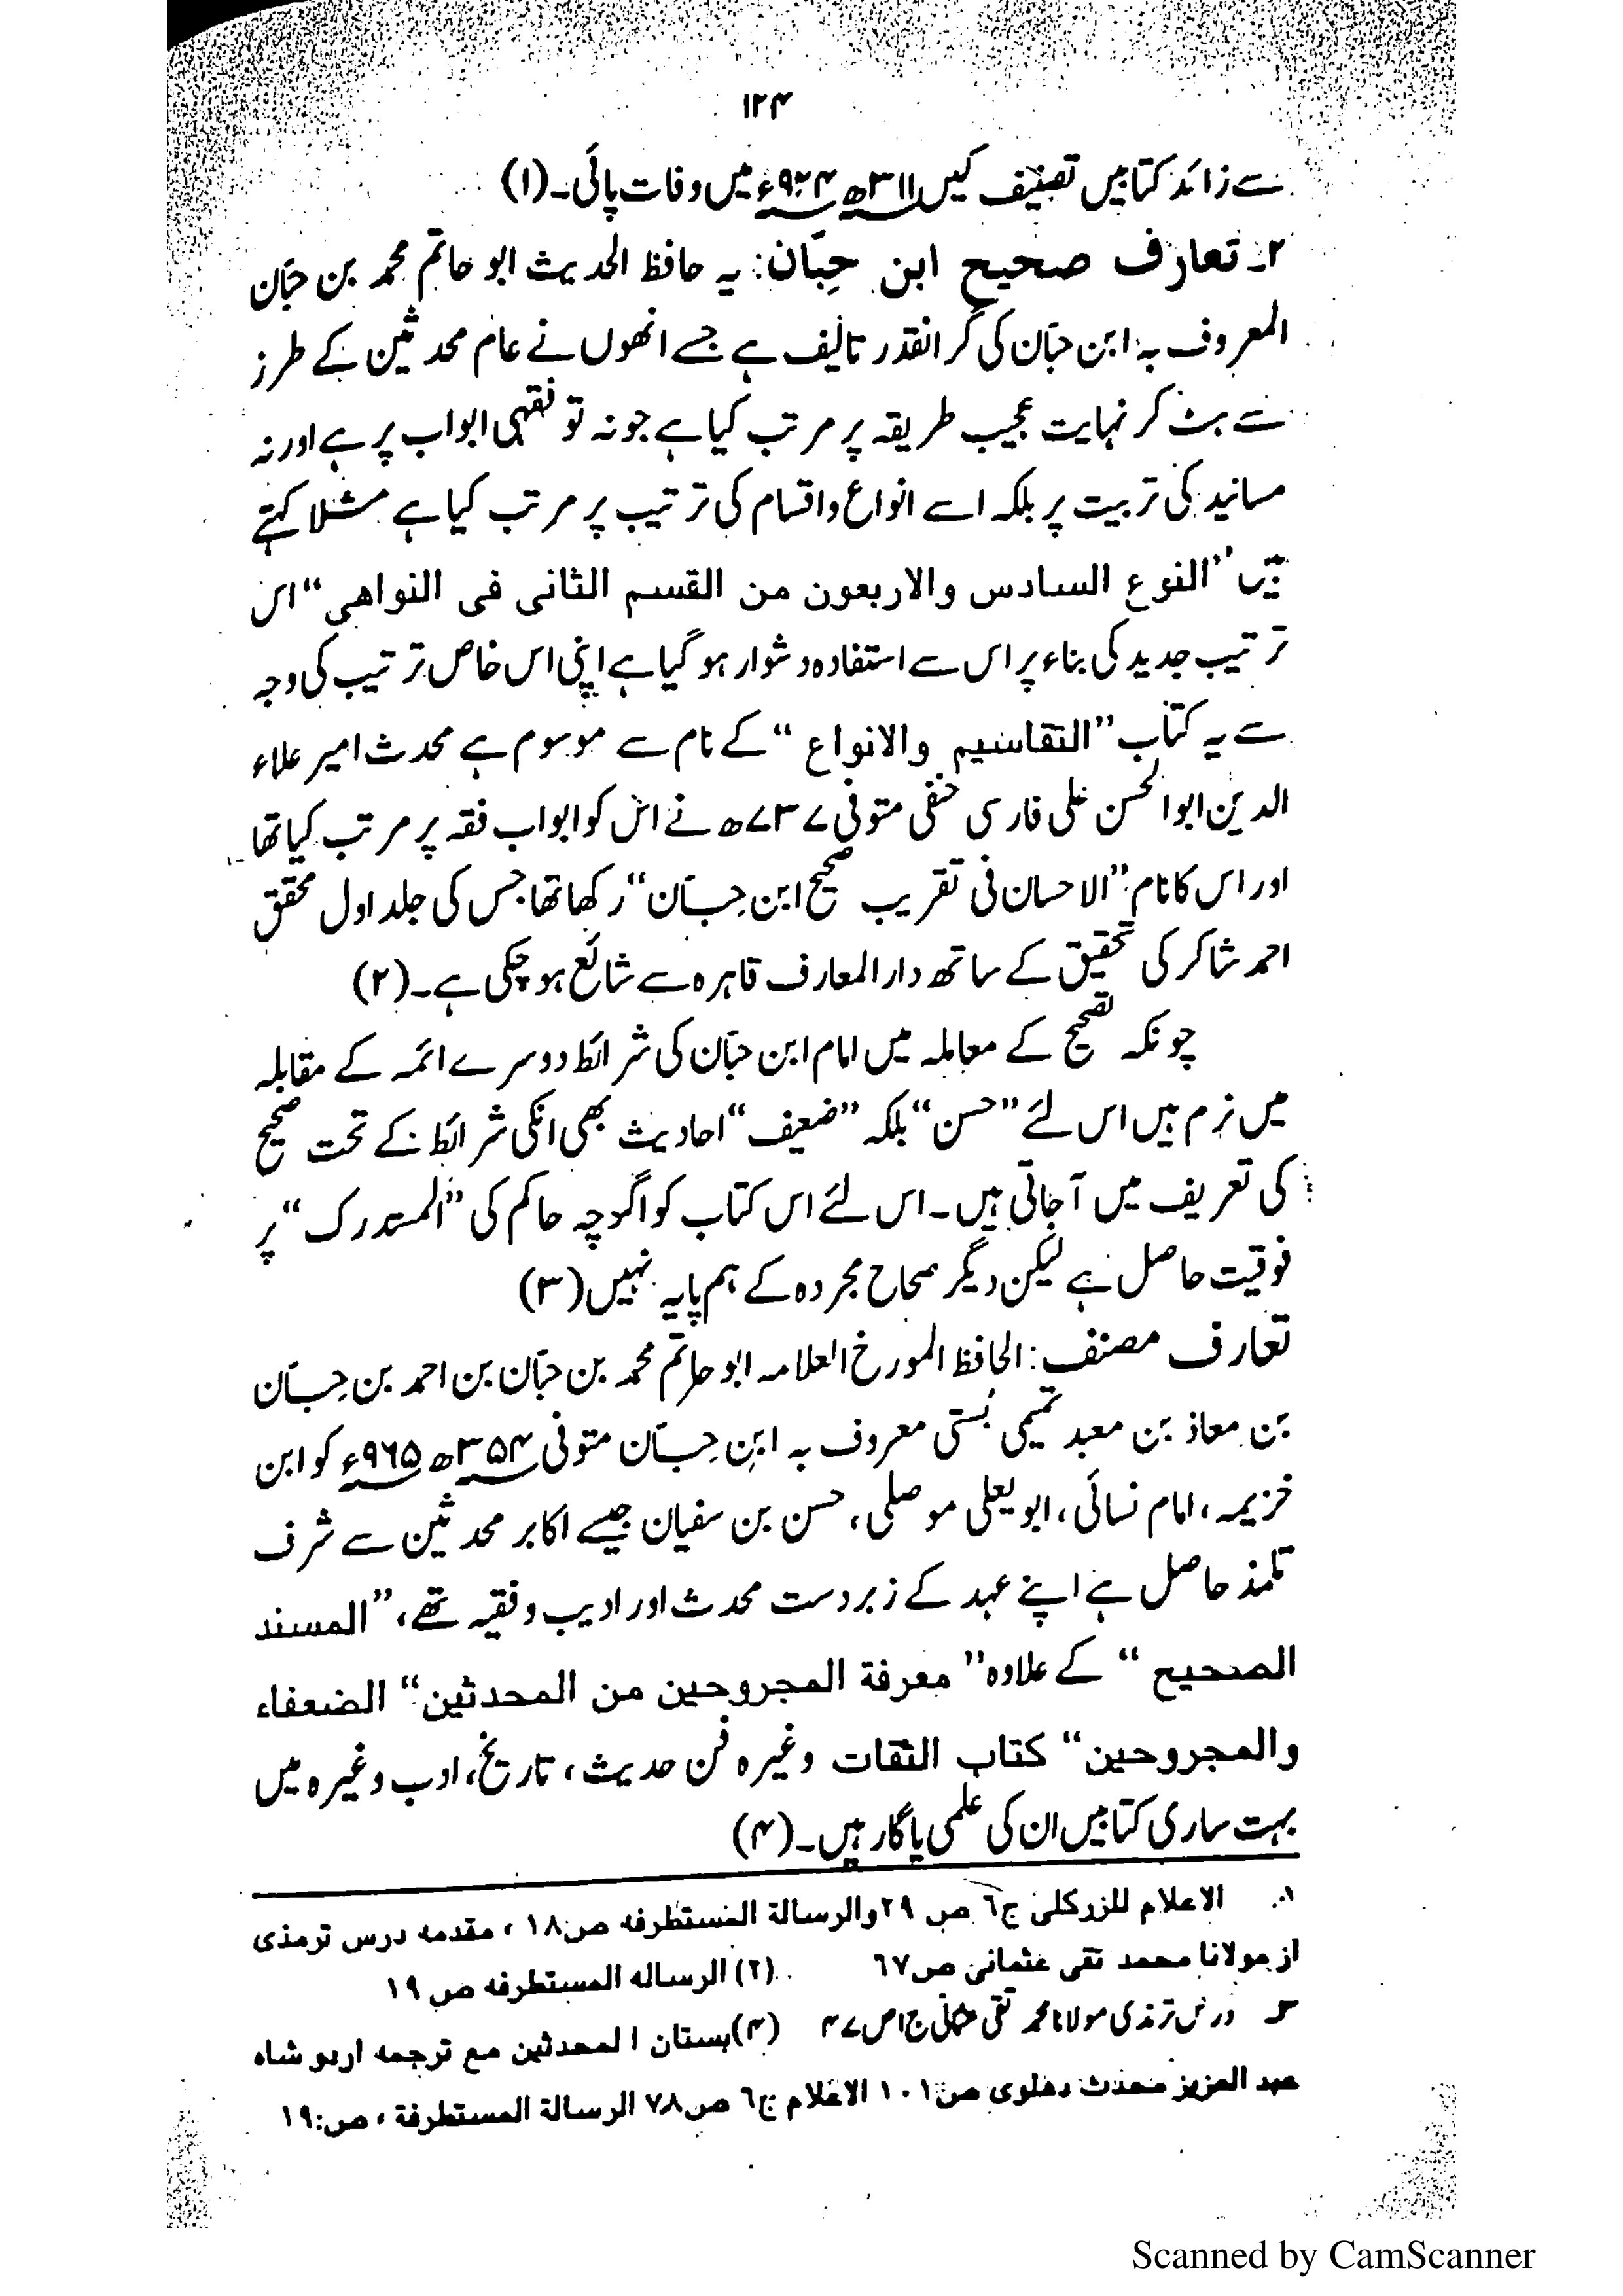 ۱۲۴
سے زائد کتابیں تصنیف کیں ۳۱۱ھ ۹۲۴ء میں وفات پائی۔ (۱)
۲۔ تعارف صحیح ابن حِبّان: یہ حافظ الحدیث ابو حاتم محمد بن حبّان
المعروف بہ ابن حبّان کی گرانقدر تالیف ہے جسے انھوں نے عام محدثین کے طرز
سے ہٹ کر نہایت عجیب طریقہ پر مرتب کیا ہے جو نہ تو فقہی ابواب پر ہے اور نہ
مسانید کی تربیت پر بلکہ اسے انواع واقسام کی ترتیب پر مرتب کیا ہے مثلا کہتے
ہیں ’’النوع السادس والاربعون من القسم الثانی فی النواهی‘‘ اس
ترتیب جدید کی بناء پر اس سے استفادہ دشوار ہو گیا ہے اپنی اس خاص ترتیب کی وجہ
سے یہ کتاب ’’التقاسیم والانواع‘‘ کے نام سے موسوم ہے محدث امیر علاء
الدین ابوالحسن علی فارسی حنفی متوفی ۷۳۷ھ نے اس کو ابواب فقہ پر مرتب کیا تھا
اور اس کا نام ’’الاحسان فی تقریب صحیح ابن حِبّان‘‘ رکھا تھا جس کی جلد اول محقق
احمد شاکر کی تحقیق کے ساتھ دار المعارف قاہرہ سے شائع ہو چکی ہے۔ (۲)
چونکہ تصحیح کے معاملہ میں امام ابن حبّان کی شرائط دوسرے ائمہ کے مقابلہ
میں نرم ہیں اس لئے ’’حسن‘‘ بلکہ ’’ضعیف‘‘ احادیث بھی انکی شرائط کے تحت صحیح
کی تعریف میں آجاتی ہیں۔ اس لئے اس کتاب کو اگرچہ حاکم کی ’’المستدرک‘‘ پر
فوقیت حاصل ہے لیکن دیگر صحاح مجردہ کے ہم پایہ نہیں (۳)
تعارف مصنف: الحافظ المورخ العلامہ ابو حاتم محمد بن حبّان بن احمد بن حِبّان
بن معاذ بن معبد تمیمی بُستی معروف بہ ابن حِبّان متوفی ۳۵۴ھ ۹۶۵ء کو ابن
خزیمہ، امام نسائی، ابو یعلی موصلی، حسن بن سفیان جیسے اکابر محدثین سے شرف
تلمذ حاصل ہے اپنے عہد کے زبردست محدث اور ادیب و فقیہ تھے، ’’المسند
الصحیح‘‘ کے علاوہ ’’معرفة المجروحین من المحدثین‘‘ الضعفاء
والمجروحین‘‘ کتاب الثقات وغیرہ فن حدیث، تاریخ، ادب وغیرہ میں
بہت ساری کتابیں ان کی علمی یاگار ہیں۔ (۴)
۱۔ الاعلام للزرکلی ج٦ ص ۲۹ والرسالة المستطرفه ص:۱۸، مقدمه درس ترمذی
از مولانا محمد تقی عثمانی ص٦٧ (۲) الرساله المستطرفه ص ۱۹
۳۔ درس ترمذی مولانا محمد تقی عثمانی ج۱ ص۷۴ (۴) بستان المحدثین مع ترجمه اردو شاه
عبد العزیز محدث دهلوی ص۱۰۱ الاعلام ج٦ ص۷۸ الرسالة المستطرفة، ص:۱۹
Scanned by CamScanner